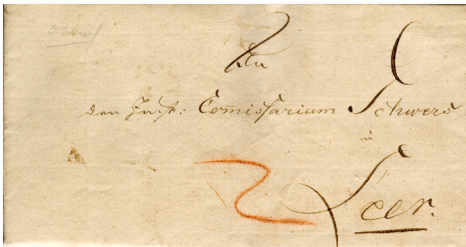 An
den Just: Comissarium Schwers
in
Leer.